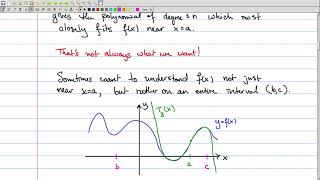 gives the polynomial of degree ≤ n which most
closely fits f(x) near x=a.
That's not always what we want!
Sometimes want to understand f(x) not just
near x=a, but rather on an entire interval (b,c).
T₃(x)
y=f(x)
b
a
c
x